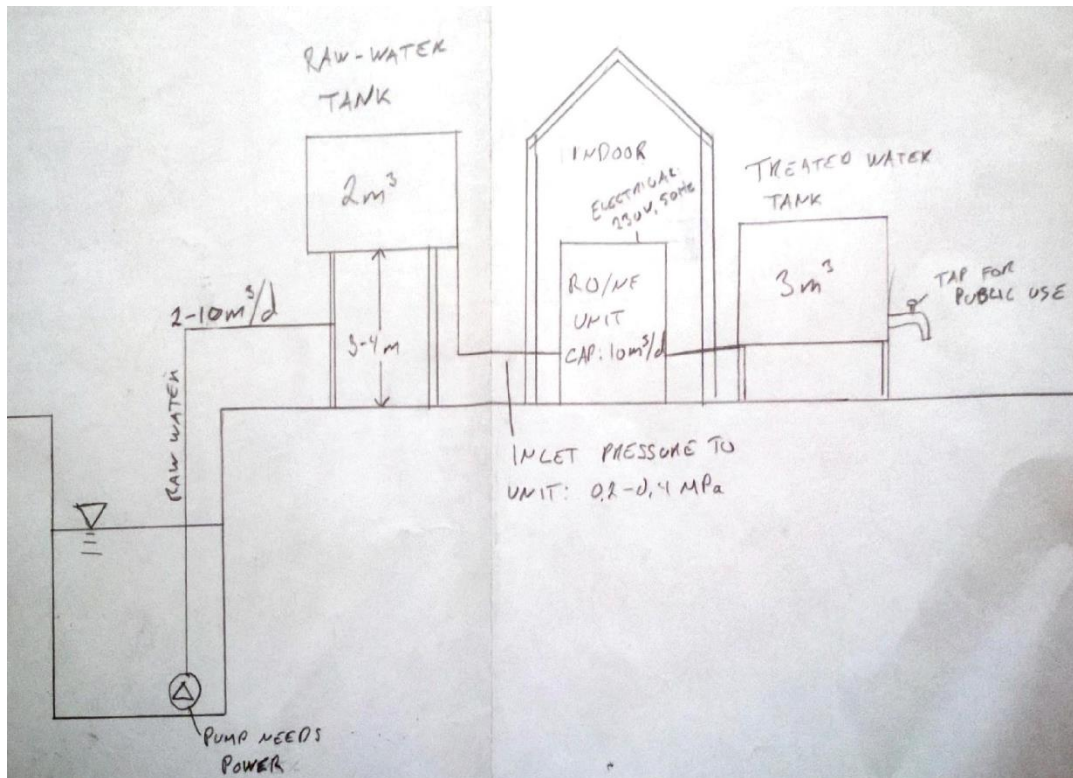 RAW-WATER
TANK
2m³
2-10m³/d
3-4m
RAW WATER
PUMP NEEDS
POWER
INDOOR
ELECTRICAL
230V, 50Hz
RO/NF
UNIT
CAP: 10m³/d
INLET PRESSURE TO
UNIT: 0,2-0,4 MPa
TREATED WATER
TANK
3m³
TAP FOR
PUBLIC USE